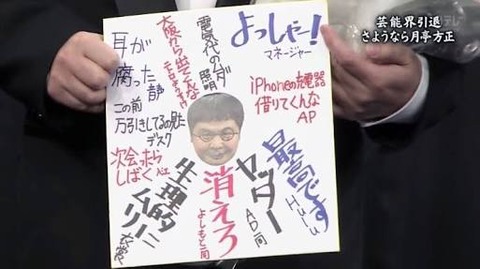 芸能界引退
さようなら月亭方正
よっしゃー!
マネージャー
電気代のムダ
照明
大阪から出てくんな
耳が
腐った
この前
万引きしてるの見た
デスク
iPhoneの充電器
借りてくんな
AP
次会ったら
しばく
生理的に
ムリー
衣裳
消えろ
よしもと一同
ヤッター
AD一同
最高です
Hulu